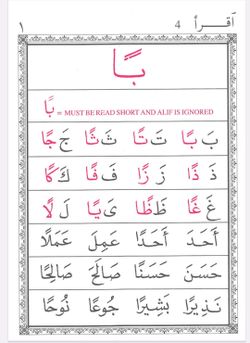 ١ 4 اَقـرأ
بًا
بًا = MUST BE READ SHORT AND ALIF IS IGNORED
بَ بًا تَ تًا ثَ ثًا جَ جًا
ذَ ذًا زَ زًا فَ فًا كَ كًا
غَ غًا ظَ ظًا ىَ يًا لَ لًا
أَحَدَ أَحَدًا عَمِلَ عَمَلًا
حَسَنَ حَسَنًا صَالِحَ صَالِحًا
نَذِيرًا بَشِيرًا جُوعًا نُوحًا